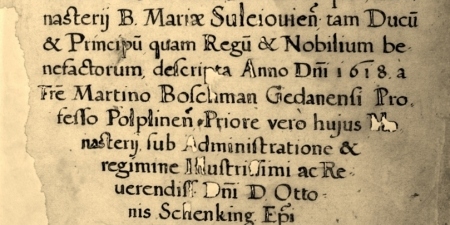 nasterij B. Mariæ Sulciouien̄, tam Ducū
& Principū quam Regū & Nobilium be
nefactorum, descripta Anno Dn̄i 1618. a
Fr̄e Martino Boschman Gedanensi Pro
fesso Polplinen̄. Priore vero hujus
nasterij, sub Administratione &
regimine Illustrissimi ac Re
uerendiss. Dn̄i D. Otto
nis Schenking Ep̄i